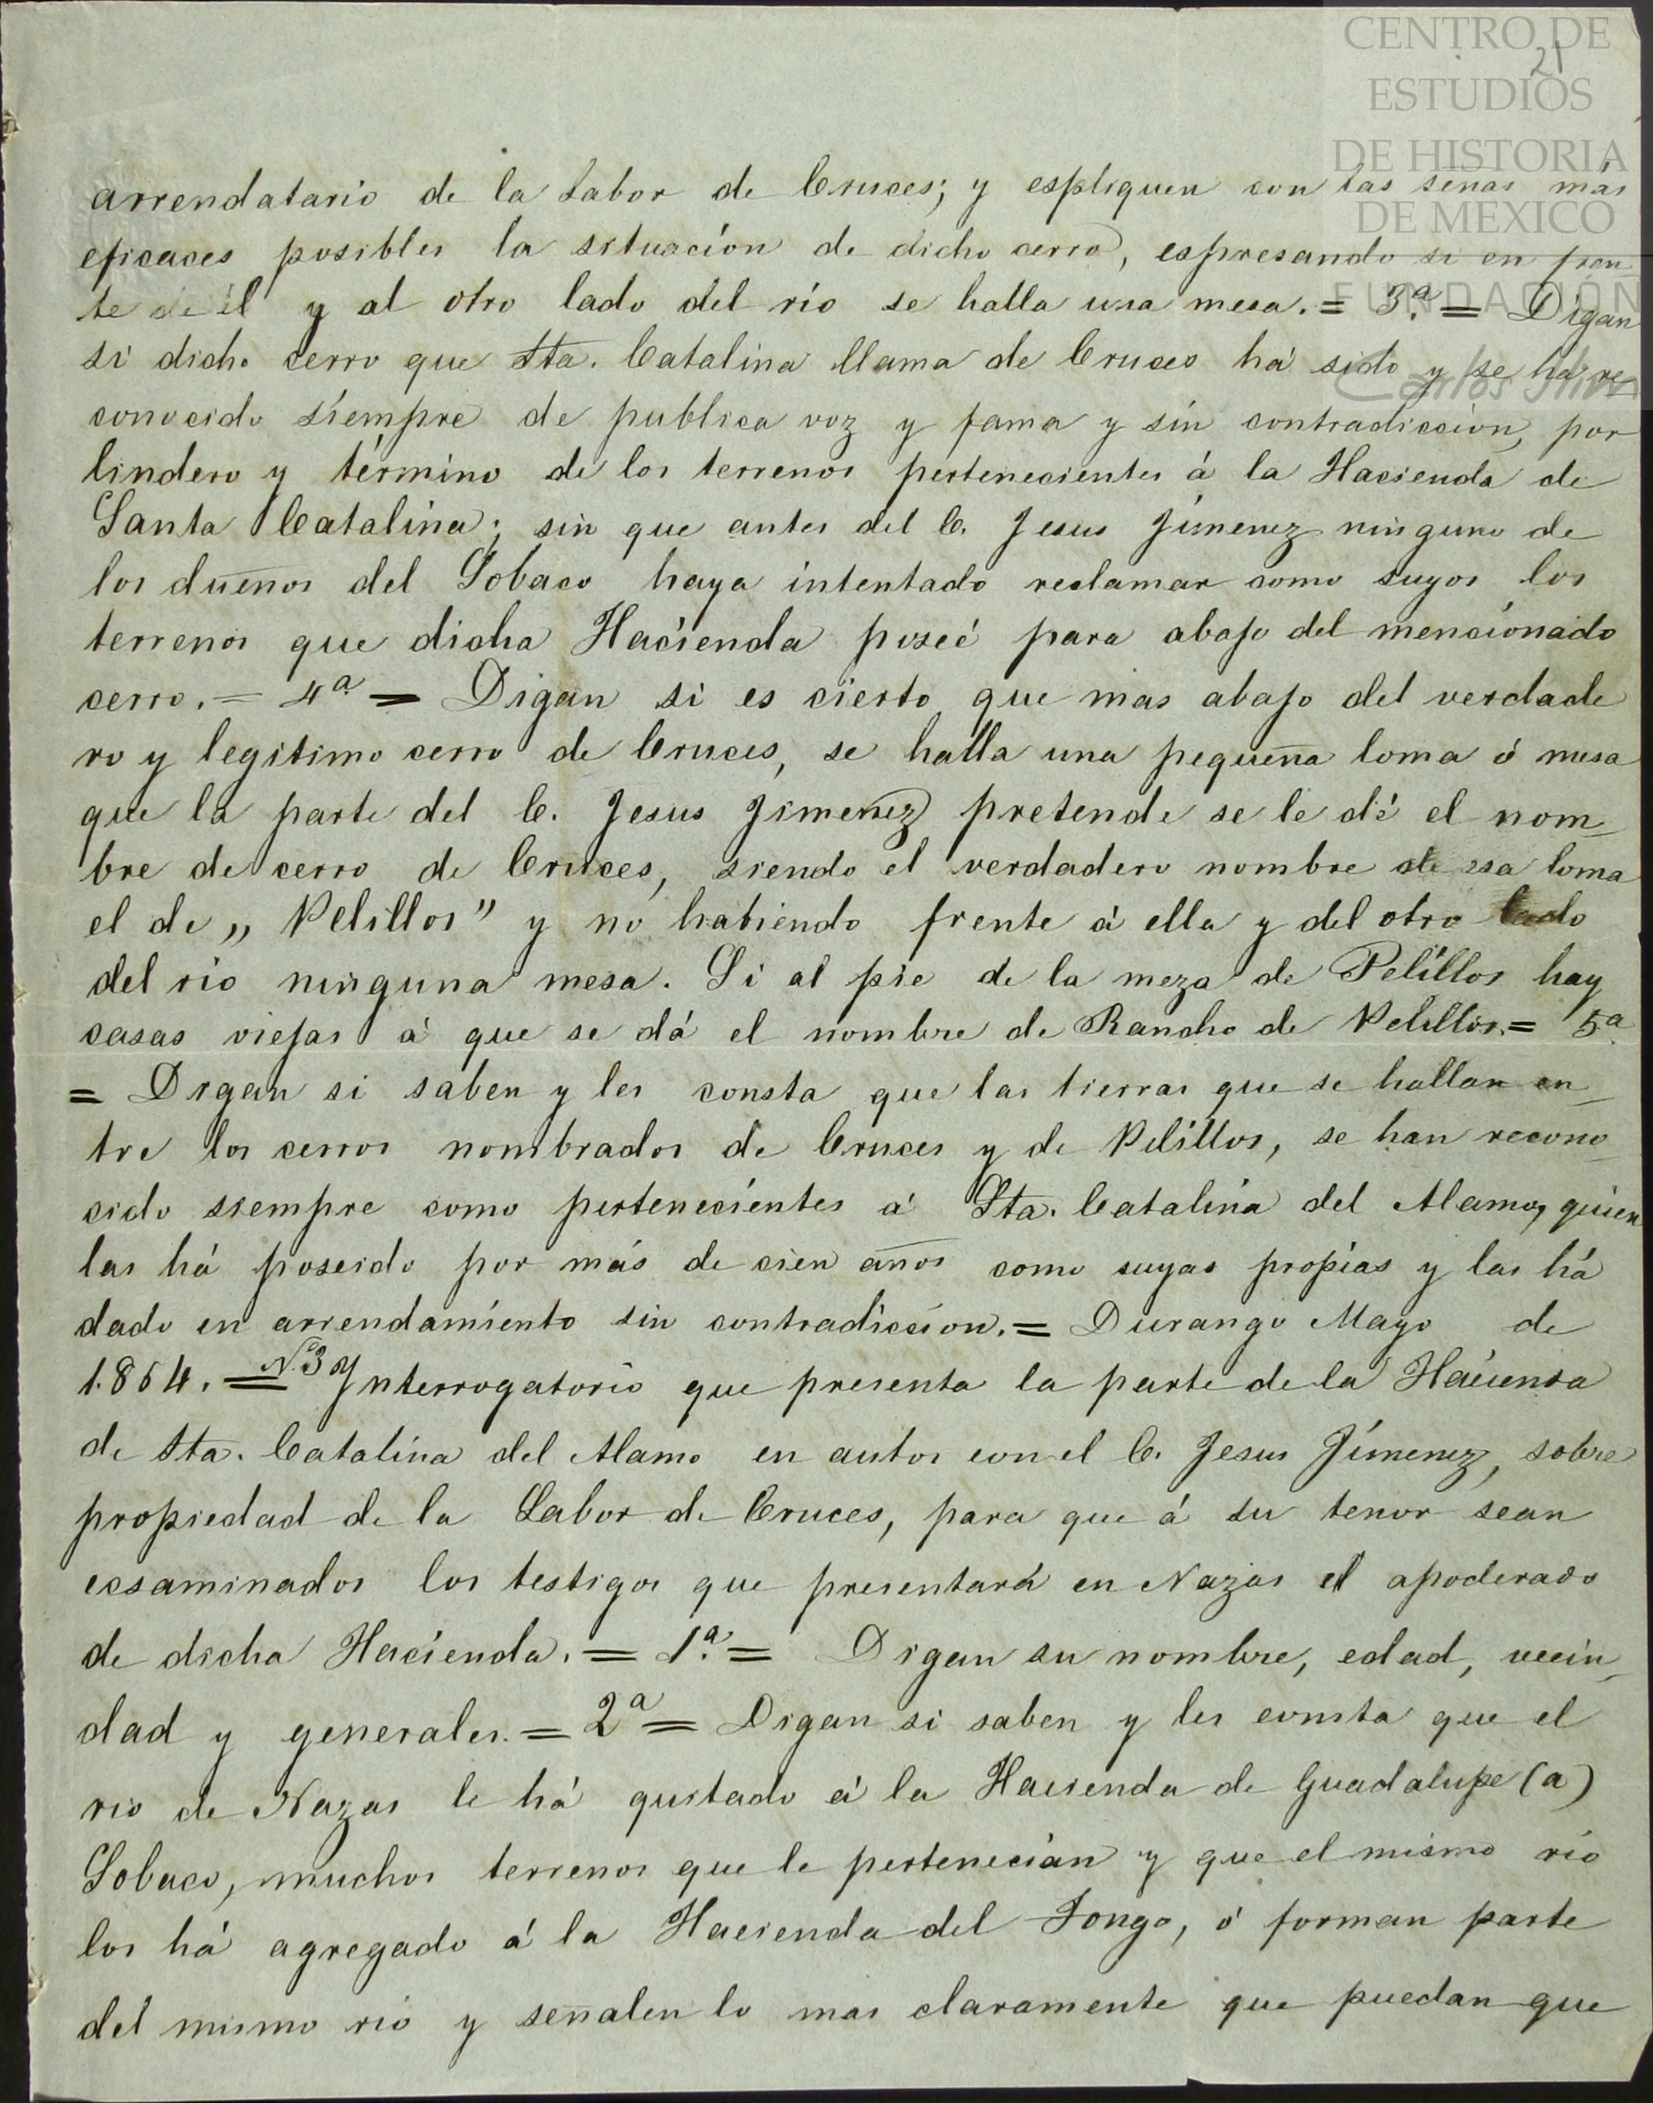 CENTRO DE
ESTUDIOS
DE HISTORIA
DE MEXICO
FUNDACIÓN
Carlos Slim
21
arrendatario de la Labor de Cruces; y espliquen con las señas más
eficaces posibles la situacion de dicho cerro, espresando si en fren
te de él y al otro lado del río se halla una mesa. = 3.ª = Digan
si dicho cerro que Sta. Catalina llama de Cruces há sido y se há re
conocido siempre de publica voz y fama y sin contradiccion, por
lindero y término de los terrenos pertenecientes á la Hacienda de
Santa Catalina; sin que antes del C. Jesus Jimenez ninguno de
los dueños del Sobaco haya intentado reclamar como suyos los
terrenos que dicha Hacienda poseé para abajo del mencionado
cerro. = 4.ª = Digan si es cierto que mas abajo del verdade
ro y legitimo cerro de Cruces, se halla una pequeña loma ó mesa
que la parte del C. Jesus Jimenez pretende se le dé el nom-
bre de cerro de Cruces, siendo el verdadero nombre de esa loma
el de „ Pelillos" y no habiendo frente á ella y del otro lado
del rio ninguna mesa. Si al pie de la meza de Pelillos hay
casas viejas á que se dá el nombre de Rancho de Pelillos. = 5.ª
= Digan si saben y les consta que las tierras que se hallan en-
tre los cerros nombrados de Cruces y de Pelillos, se han recono-
cido siempre como pertenecientes á Sta. Catalina del Alamo, quien
las há poseido por más de cien años como suyas propias y las há
dado en arrendamiento sin contradiccion. = Durango Mayo de
1.864. = N.º 3 Ynterrogatorio que presenta la parte de la Hacienda
de Sta. Catalina del Alamo en autos con el C. Jesus Jimenez, sobre
propiedad de la Labor de Cruces, para que á su tenor sean
ecsaminados los testigos que presentará en Nazas el apoderado
de dicha Hacienda. = 1.ª = Digan su nombre, edad, vecin-
dad y generales. = 2.ª = Digan si saben y les consta que el
rio de Nazas le há quitado á la Hacienda de Guadalupe (a)
Sobaco, muchos terrenos que le pertenecian y que el mismo rio
los há agregado á la Hacienda del Fongo, ó forman parte
del mismo rio y señalen lo mas claramente que puedan que